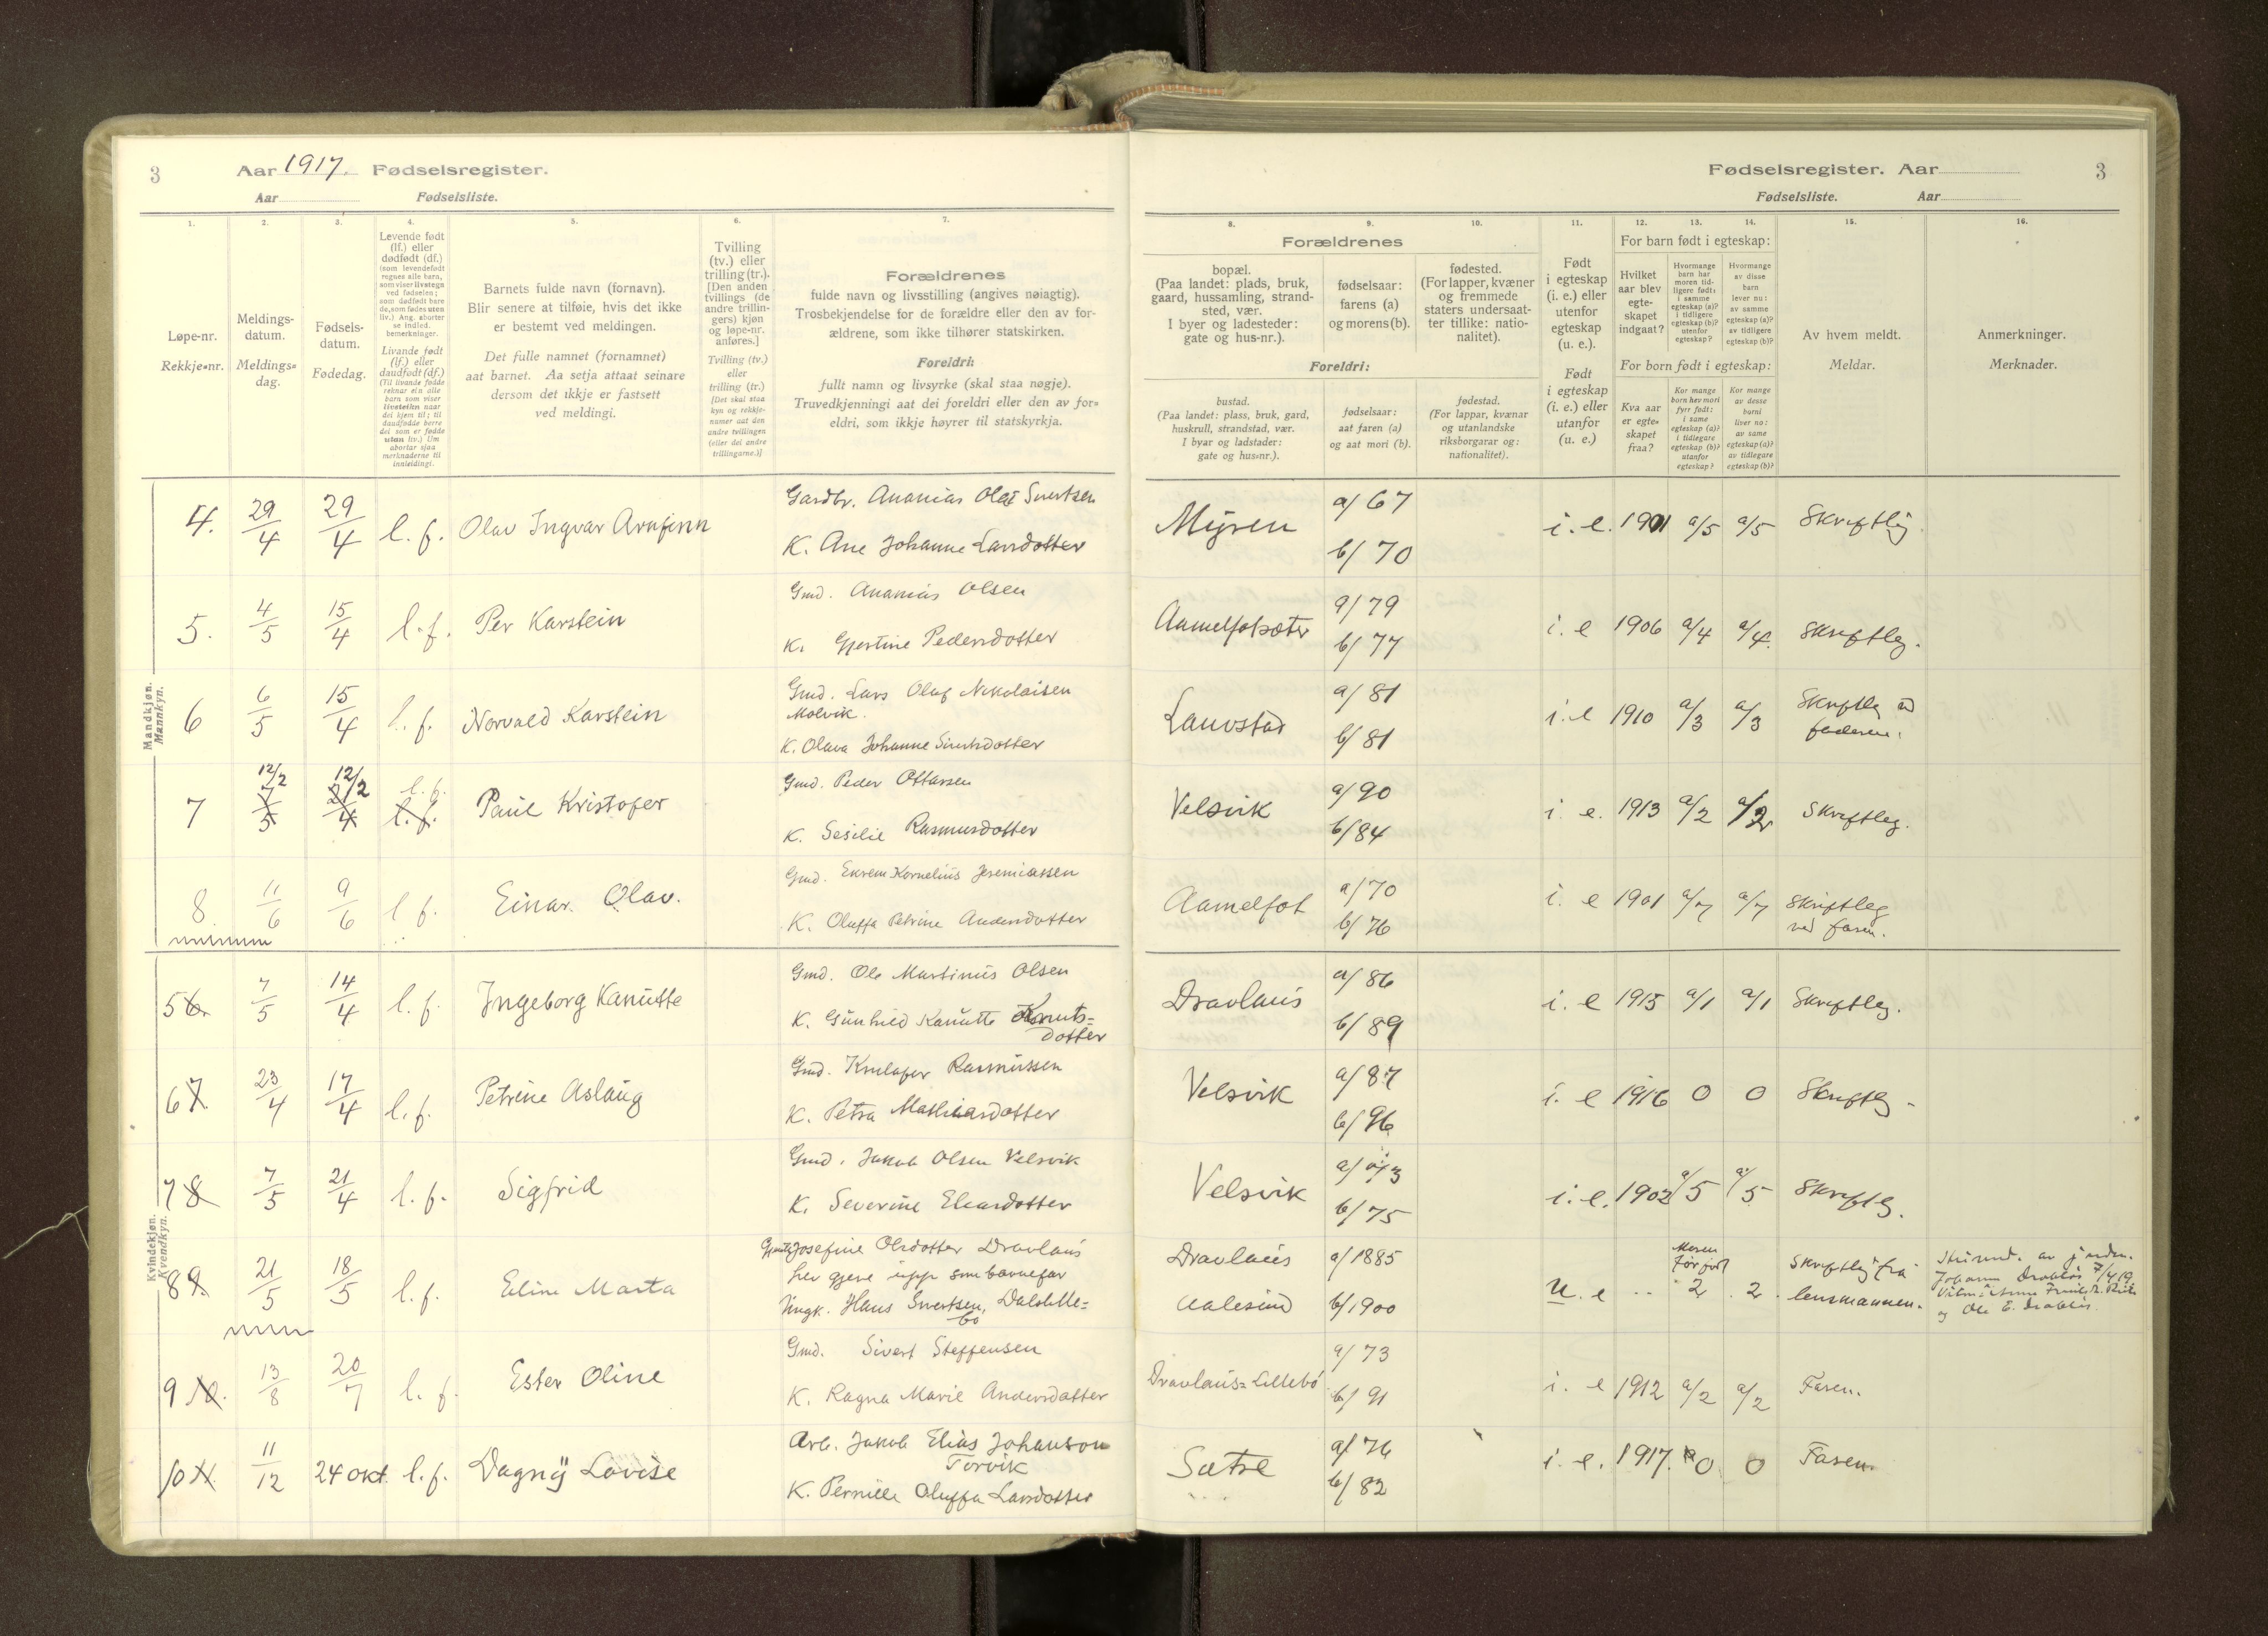 3 Aar 1917. Fødselsregister.
Aar Fødselsliste.
Fødselsregister. Aar 3
Fødselsliste. Aar
1. 2. 3. 4. 5. 6. 7.
Løpe-nr.
Rekkje-nr.
Meldings-
datum.
Meldings-
dag.
Fødsels-
datum.
Fødedag.
Levende født
(lf.) eller
dødfødt (df.)
(som levendefødt
regnes alle barn,
som viser livstegn
ved fødselen;
som dødfødt bare
de, som fødes uten
liv.) Ang. aborter
se indled.
bemerkninger.
Livande født
(lf.) eller
daudfødt (df.)
(Til livande fødde
reknar ein alle
barn som viser
livsteikn naar
dei kjem til; til
daudfødde berre
dei som er fødde
utan liv.) Um
abortar sjaa
merknaderne til
innleidingi.
Barnets fulde navn (fornavn).
Blir senere at tilføie, hvis det ikke
er bestemt ved meldingen.
Det fulle namnet (fornamnet)
aat barnet. Aa setja attaat seinare
dersom det ikkje er fastsett
ved meldingi.
Tvilling
(tv.) eller
trilling (tr.).
[Den anden
tvillings (de
andre trillin-
gers) kjøn
og løpe-nr.
anføres.]
Tvilling (tv.)
eller
trilling (tr.)
[Det skal staa
kyn og rekkje-
numer aat den
andre tvillingen
(eller dei andre
trillingarne.)]
Forældrenes
fulde navn og livsstilling (angives nøiagtig).
Trosbekjendelse for de forældre eller den av for-
ældrene, som ikke tilhører statskirken.
Foreldri:
fullt namn og livsyrke (skal staa nøgje).
Truvedkjenningi aat dei foreldri eller den av for-
eldri, som ikkje høyrer til statskyrkja.
8. 9. 10. 11. 12. 13. 14. 15. 16.
Forældrenes
bopæl.
(Paa landet: plads, bruk,
gaard, hussamling, strand-
sted, vær.
I byer og ladesteder:
gate og hus-nr.).
fødselsaar:
farens (a)
og morens (b).
fødested.
(For lapper, kvæner
og fremmede
staters undersaat-
ter tillike: natio-
nalitet).
Foreldri:
bustad.
(Paa landet: plass, bruk, gard,
huskrull, strandstad, vær.
I byar og ladstader:
gate og hus-nr.).
fødselsaar:
aat faren (a)
og aat mori (b).
fødestad.
(For lappar, kvænar
og utanlandske
riksborgarar og:
nationalitet).
Født
i egteskap
(i. e.) eller
utenfor
egteskap
(u. e.).
Født
i egteskap
(i. e.) eller
utanfor
(u. e.)
For barn født i egteskap:
Hvilket
aar blev
egte-
skapet
indgaat?
Hvormange
barn har
moren tid-
ligere født:
i samme
egteskap (a)?
i tidligere
egteskap (b)?
utenfor
egteskap?
Hvormange
av disse
barn
lever nu:
av samme
egteskap (a)?
av tidligere
egteskap (b)?
For born født i egteskap:
Kva aar
er egte-
skapet
fraa?
Kor mange
born hev mori
fyrr født:
i same
egteskap (a)?
i tidlegare
egteskap (b)?
utanfor
egteskap?
Kor mange
av desse
borni
liver no:
av same
egteskap (a)?
av tidlegare
egteskap (b)?
Av hvem meldt.
Meldar.
Anmerkninger.
Merknader.
Mandkjøn.
Mannkyn.
4. 29/4 29/4 l. f. Olav Ingvar Arnfinn
Gardbr. Ananias Olai Sivertsen
K. Ane Johanne Larsdotter
Myren a/ 67 b/ 70 i. e. 1901 a/5 a/5 Skriftlig
5. 4/5 15/4 l. f. Per Karstein
Gmd. Ananias Olsen
K. Gjertine Pedersdotter
Aamelfotsæter a/79 b/77 i. e 1906 a/4 a/4. Skriftleg.
6 6/5 15/4 l. f. Norvald Karstein
Gmd. Lars Olaf Nikolaisen
Molvik.
K. Olava Johanne Sivertsdotter
Lauvstad a/81 b/81 i. e 1910 a/3 a/3 Skriftleg
faderen.
7 12/2 12/2 l. f. Paul Kristofer
Gmd. Peder Ottarsen
K. Sesilie Rasmusdotter
Velsvik a/90 b/84 i. e. 1913 a/2 a/2 Skriftleg.
8 11/6 9/6 l f. Einar Olav.
Gmd. Kornelius Jeremiassen
K. Oluffa Petrine Andersdotter
Aamelfot a/70 b/76 i. e 1901 a/7 a/7 Skriftleg
ved faren.
Kvindekjøn.
Kvendkyn.
5 6. 7/5 14/4 l. f. Ingeborg Kanutte
Gmd. Ole Martinus Olsen
K. Gunhild Kanutte Knuts-
dotter
Dravlaus a/86 b/89 i. e 1915 a/1 a/1 Skriftleg.
6 7. 23/4 17/4 l. f. Petrine Aslaug
Gmd. Rasmussen
K. Petra Mathiasdotter
Velsvik a/87 b/96 i. e 1916 0 0 Skriftleg.
7 8 7/5 21/4 l. f. Sigfrid
Gmd. Jakob Olsen Velsvik
K. Severine Eliasdotter
Velsvik a/73 b/75 i. e. 1902 a/5 a/5 Skriftleg.
8 9. 21/5 18/5 l. f. Eline Marta
Gjenta Josefine Olsdotter Dravlaus
hev gjeve upp som barnefar
Ungk. Hans Sivertsen, Dalslille-
bø
Dravlaus a/1885
Aalesund b/1900 u. e Moren
før født
2 2. Skriftleg frå
lensmannen.
9 10. 13/8 20/7 l. f. Ester Oline
Gmd. Sivert Steffensen
K. Ragna Marie Andersdotter
Dravlaus-Lillebø a/73 b/91 i. e 1912 a/2 a/2 Faren.
10 11. 11/12 24 okt. l. f. Dagny Lovise
Arb. Jakob Elias Johanson
Torvik
K. Pernille Oluffa Larsdotter
Sætre a/76 b/82 i. e. 1917. 0 0 Faren.